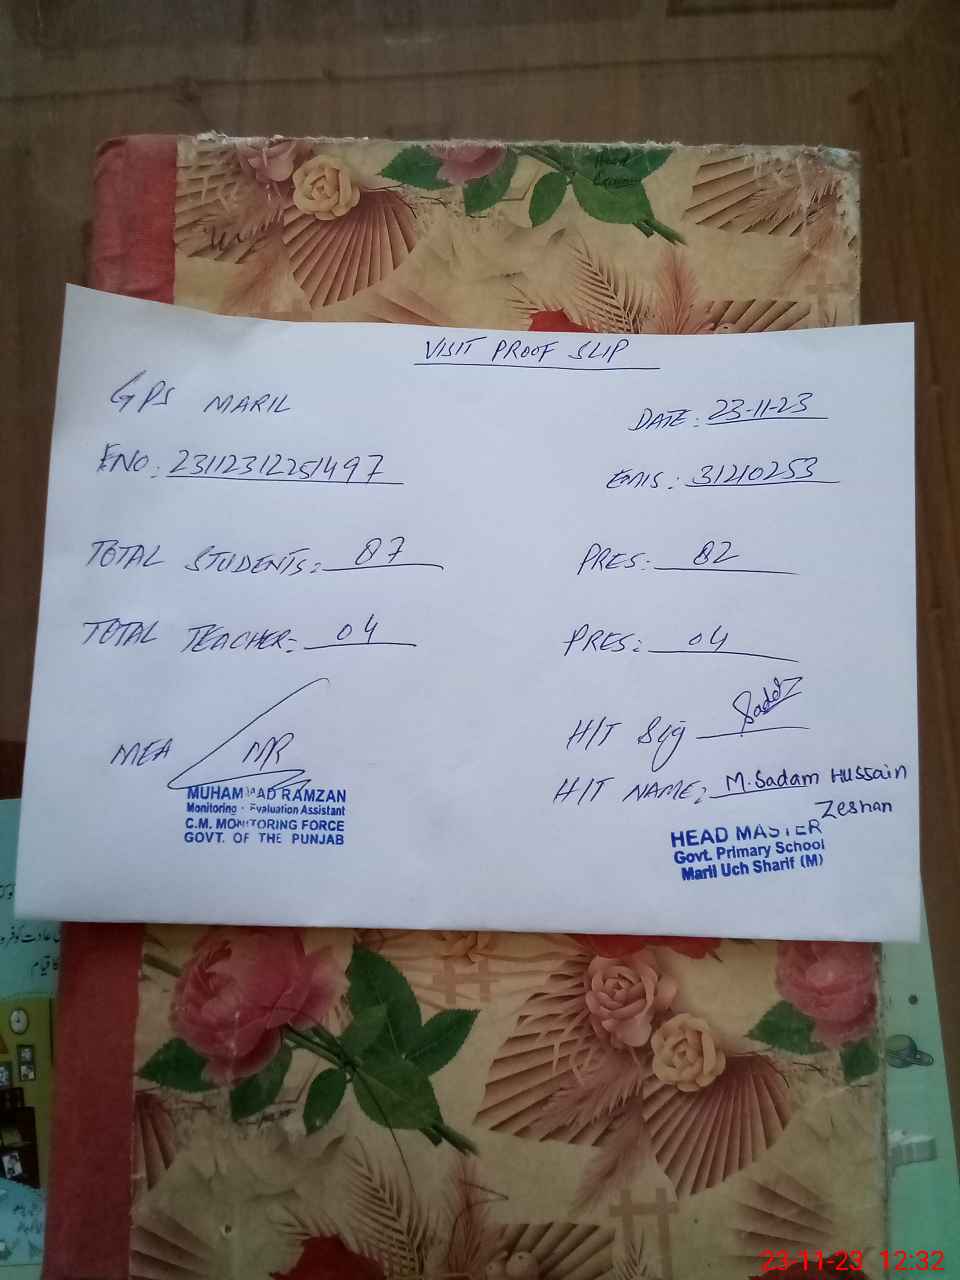 VISIT PROOF SLIP
GPS MARIL
DATE: 23-11-23
ENO: 23112312251497
EMIS: 31210253
TOTAL STUDENTS: 87
PRES: 82
TOTAL TEACHER: 04
PRES: 04
MEA MR
H/T Sig
MUHAMMAD RAMZAN
Monitoring Evaluation Assistant
C.M. MONITORING FORCE
GOVT. OF THE PUNJAB
H/T NAME: M. Sadam Hussain
Zeshan
HEAD MASTER
Govt. Primary School
Maril Uch Sharif (M)
23-11-23 12:32